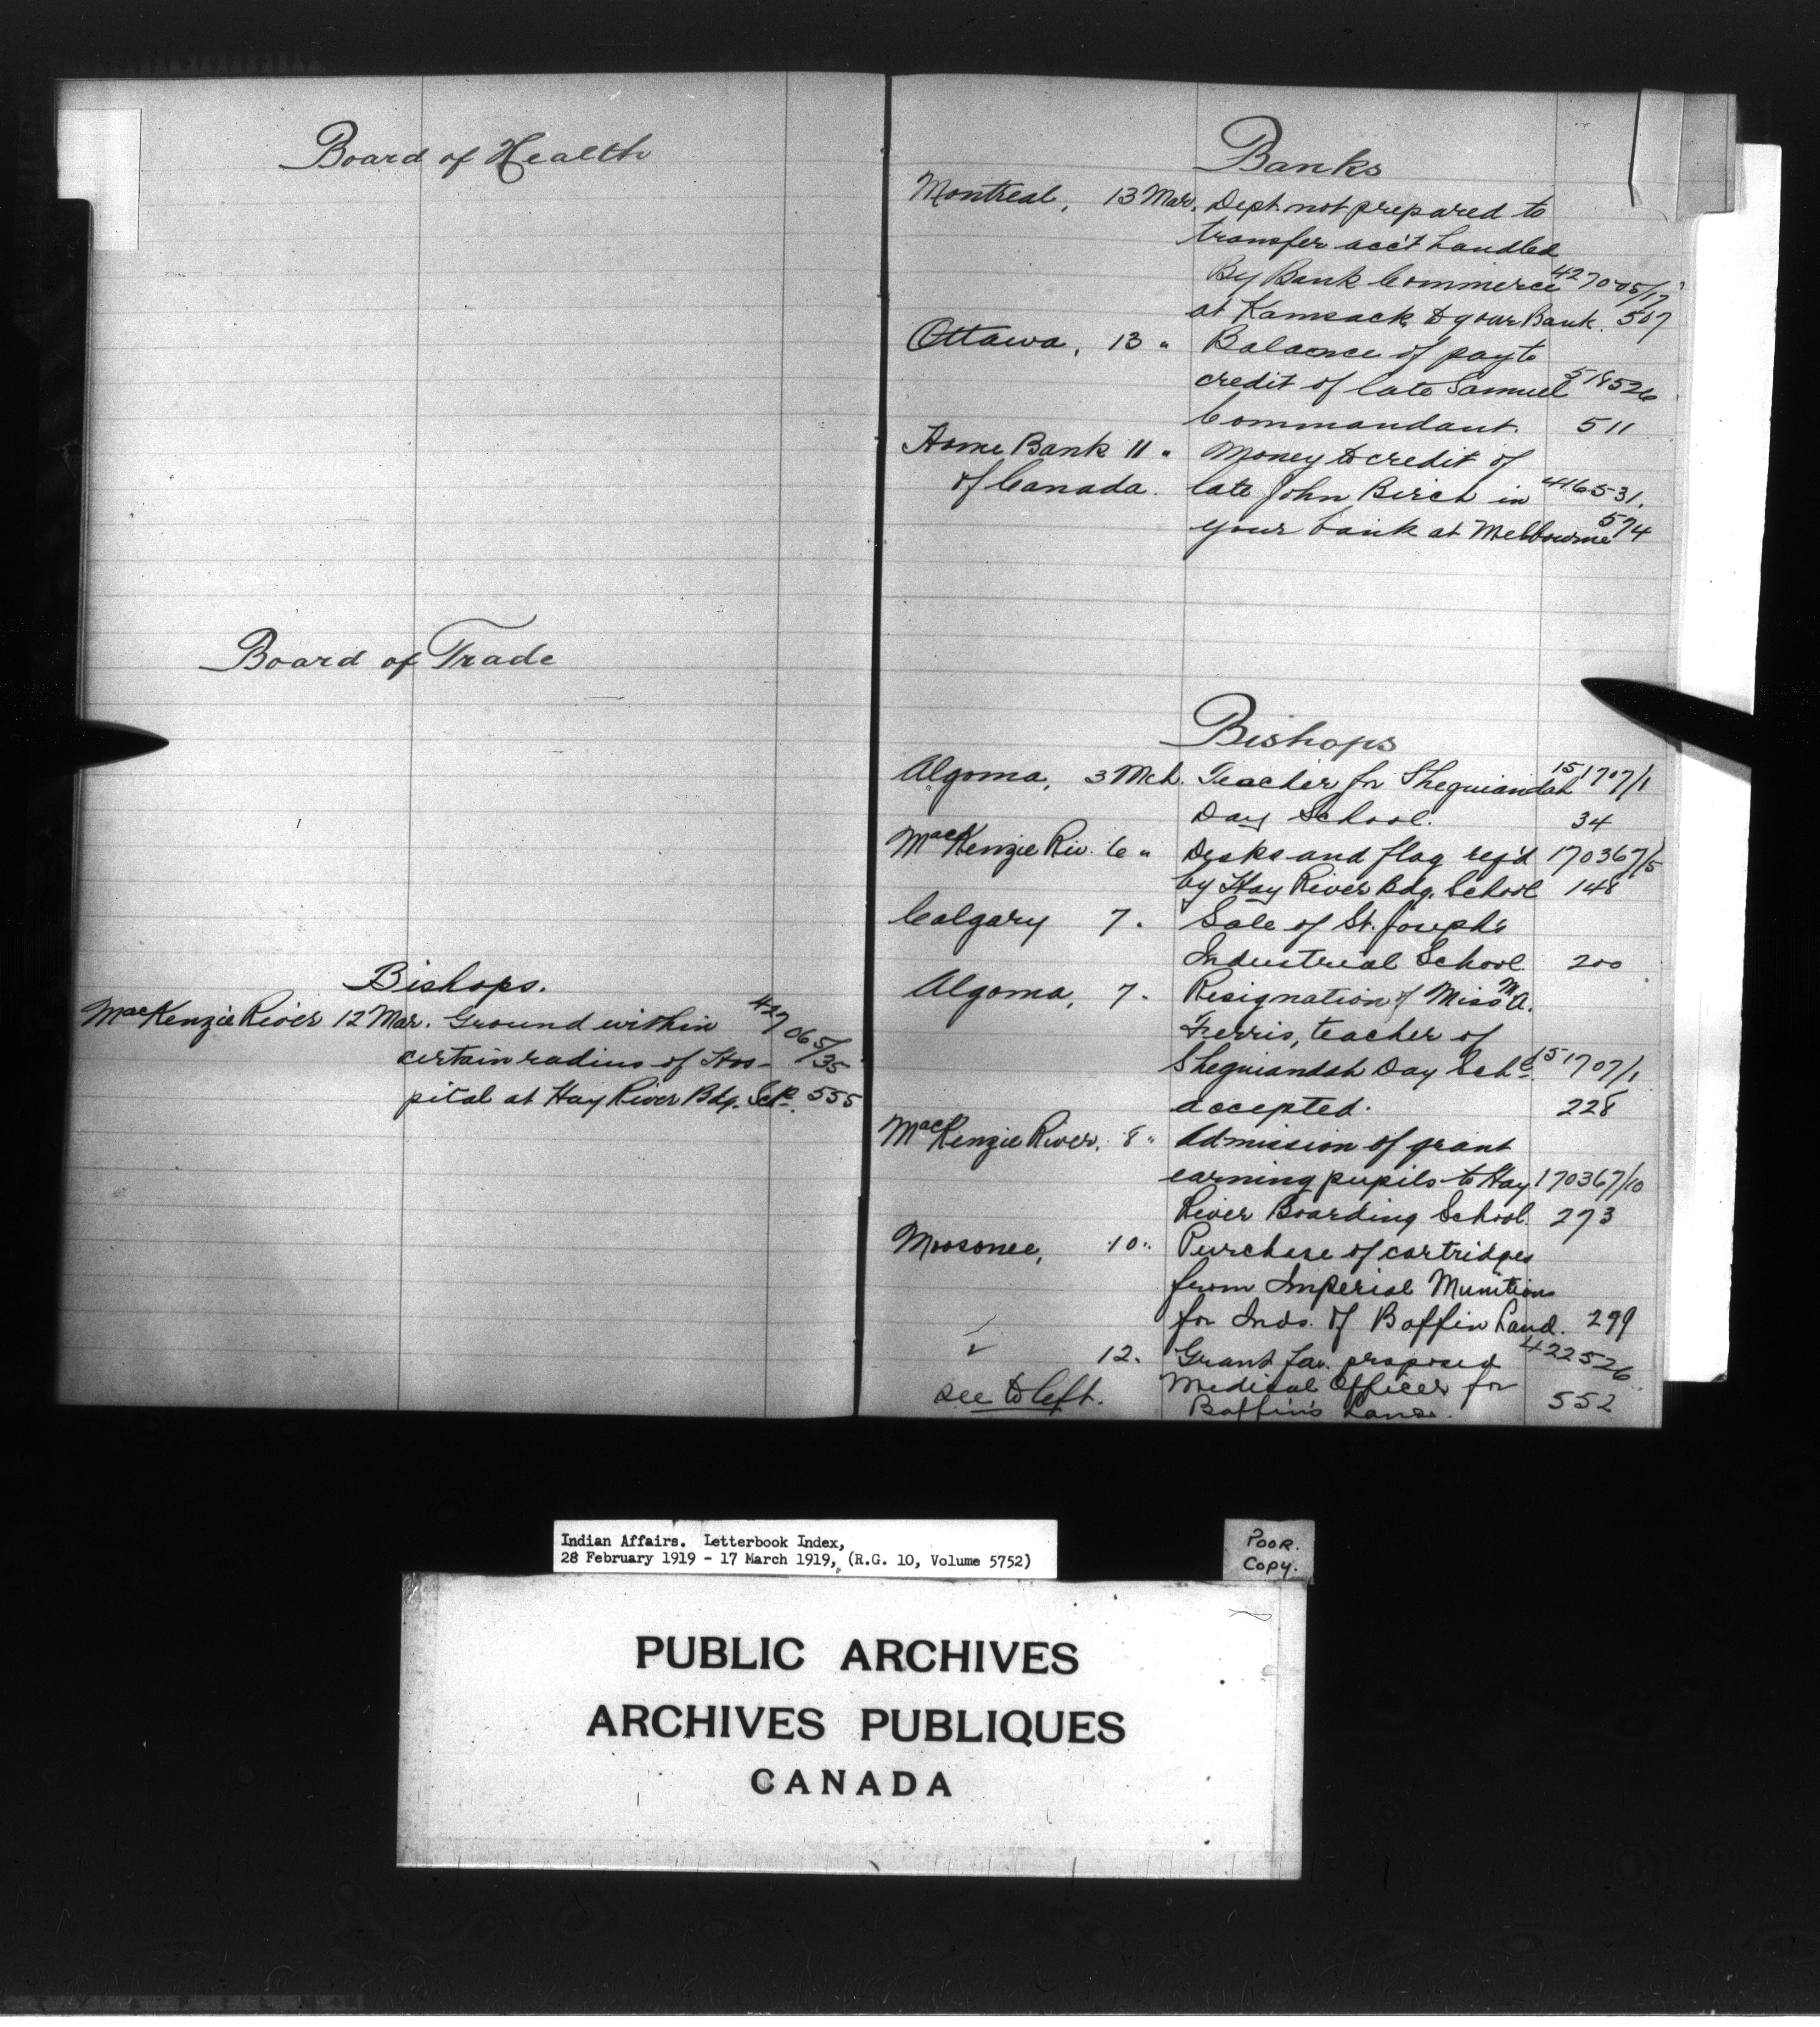 Board of Health
Board of Trade
Bishops.
MacKenzie River 12 Mar. Ground within 427065/35
certain radius of Hos-
pital at Hay River Bdg. Sch. 555
Banks
Montreal, 13 Mar. Dept. not prepared to
transfer acc't handled
By Bank Commerce 427005/17
at Kamsack to your Bank. 507
Ottawa, 13 " Balance of pay to
credit of late Samuel 518526
Commandant. 511
Home Bank 11 " Money to credit of
of Canada. late John Birch in 416531
your bank at Melbourne 574
Bishops
Algoma, 3 Mch. Teacher for Sheguiandah 151707/1
Day School. 34
MacKenzie Riv. 6 " Desks and flag req'd 170367/5
by Hay River Bdg. School 148
Calgary 7 " Sale of St. Joseph's
Industrial School. 200
Algoma, 7 " Resignation of Miss M A.
Ferris, teacher of
Sheguiandah Day Schl 151707/1
accepted. 228
MacKenzie River, 8 " Admission of grant
earning pupils to Hay 170367/10
River Boarding School. 273
Moosonee, 10 " Purchase of cartridges
from Imperial Munitions
for Inds. of Baffin Land. 299
" 12 " Grant for proposed 422526
see to left. Medical Officer for 552
Baffin's Land.
Indian Affairs. Letterbook Index,
28 February 1919 - 17 March 1919, (R.G. 10, Volume 5752)
POOR.
COPY.
PUBLIC ARCHIVES
ARCHIVES PUBLIQUES
CANADA